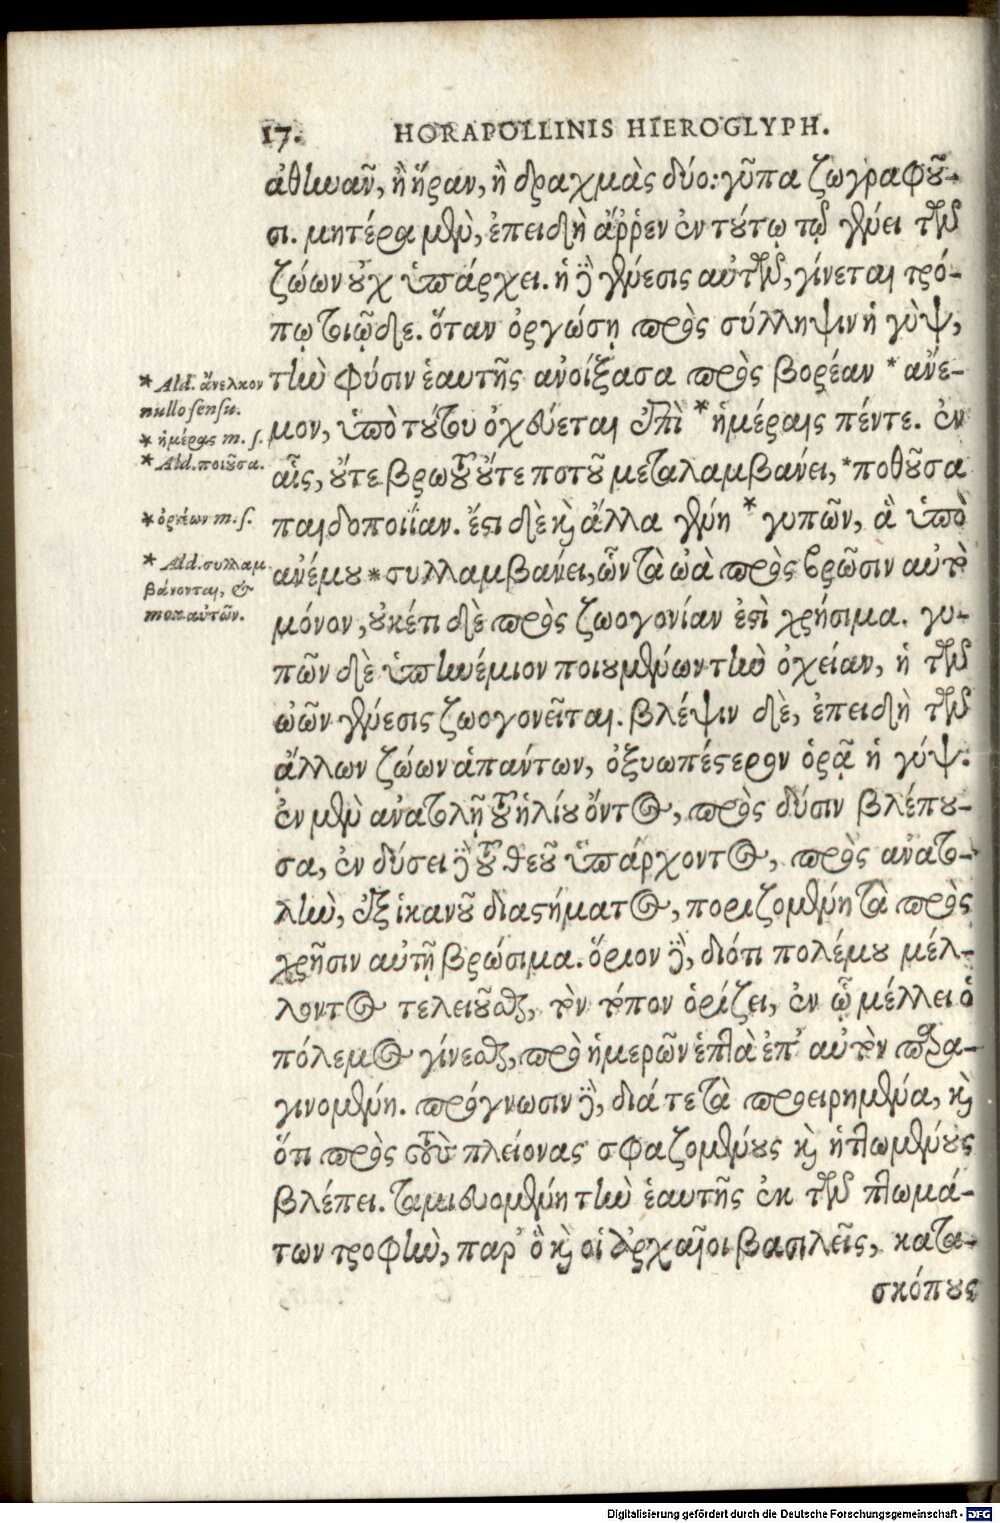 17. HORAPOLLINIS HIEROGLYPH.
ἀθηνᾶν, ἢ ἥραν, ἢ δραχμὰς δύο: γῦπα ζωγραφοῦ-
σι. μητέρα μὲν, ἐπειδὴ ἄῤῥεν ἐν τούτῳ τῷ γένει τῶν
ζώων οὐχ ὑπάρχει. ἡ δὲ γένεσις αὐτῶν, γίνεται τρό-
πῳ τοιῷδε. ὅταν ὀργώσῃ πρὸς σύλληψιν ἡ γὺψ,
τὴν φύσιν ἑαυτῆς ἀνοίξασα πρὸς βορέαν * ἄνε-
μον, ὑπὸ τούτου ὀχεύεται ἐπὶ * ἡμέραις πέντε. ἐν
αἷς, οὔτε βρωτοῦ οὔτε ποτοῦ μεταλαμβάνει, * ποθοῦσα
παιδοποιΐαν. ἔστι δὲ καὶ ἄλλα γένη * γυπῶν, ἃ ὑπὸ
ἀνέμου * συλλαμβάνει, ὧν τὰ ὠὰ πρὸς βρῶσιν αὐτὸ
μόνον, οὐκέτι δὲ πρὸς ζωογονίαν ἐστὶ χρήσιμα. γυ-
πῶν δὲ ὑπηνέμιον ποιουμένων τὴν ὀχείαν, ἡ τῶν
ὠῶν γένεσις ζωογονεῖται. βλέψιν δὲ, ἐπειδὴ τῶν
ἄλλων ζώων ἁπάντων, ὀξυωπέστερον ὁρᾷ ἡ γύψ:
ἐν μὲν ἀνατολῇ τοῦ ἡλίου ὄντος, πρὸς δύσιν βλέπου-
σα, ἐν δύσει δὲ τοῦ θεοῦ ὑπάρχοντος, πρὸς ἀνατο-
λὴν, ἐξ ἱκανοῦ διαστήματος, ποριζομένη τὰ πρὸς
χρῆσιν αὐτῇ βρώσιμα. ὅριον δὲ, διότι πολέμου μέλ-
λοντος τελειοῦσθαι, τὸν τόπον ὁρίζει, ἐν ᾧ μέλλει ὁ
πόλεμος γίνεσθαι, πρὸ ἡμερῶν ἑπτὰ ἐπ' αὐτὸν παρα-
γινομένη. πρόγνωσιν δὲ, διά τε τὰ προειρημένα, καὶ
ὅτι πρὸς τοὺς πλείονας σφαζομένους καὶ ἡττωμένους
βλέπει. ταμιευομένη τὴν ἑαυτῆς ἐκ τῶν πτωμά-
των τροφὴν, παρ' ὃ καὶ οἱ ἀρχαῖοι βασιλεῖς, κατα-
σκόπους
* Ald. ἄνελκον
nullo sensu.
* ἡμέρας m. s.
* Ald. ποιοῦσα.
* ὀρνέων m. s.
* Ald. συλλαμ
βάνονται, &
mox αὐτῶν.
Digitalisierung gefördert durch die Deutsche Forschungsgemeinschaft - DFG